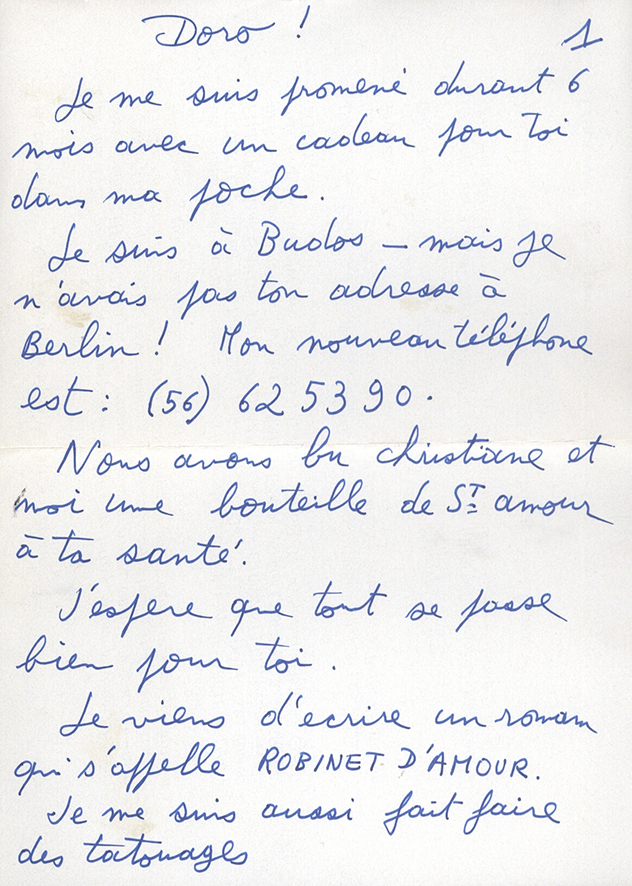 Doro !
1
Je me suis promené durant 6
mois avec un cadeau pour Toi
dans ma poche.
Je suis à Budos – mais je
n'avais pas ton adresse à
Berlin ! Mon nouveau téléphone
est : (56) 62 53 90.
Nous avons bu christiane et
moi une bouteille de ST amour
à ta santé.
J'espere que tout se passe
bien pour toi.
Je viens d'ecrire un roman
qui s'appelle ROBINET D'AMOUR.
Je me suis aussi fait faire
des tatouages